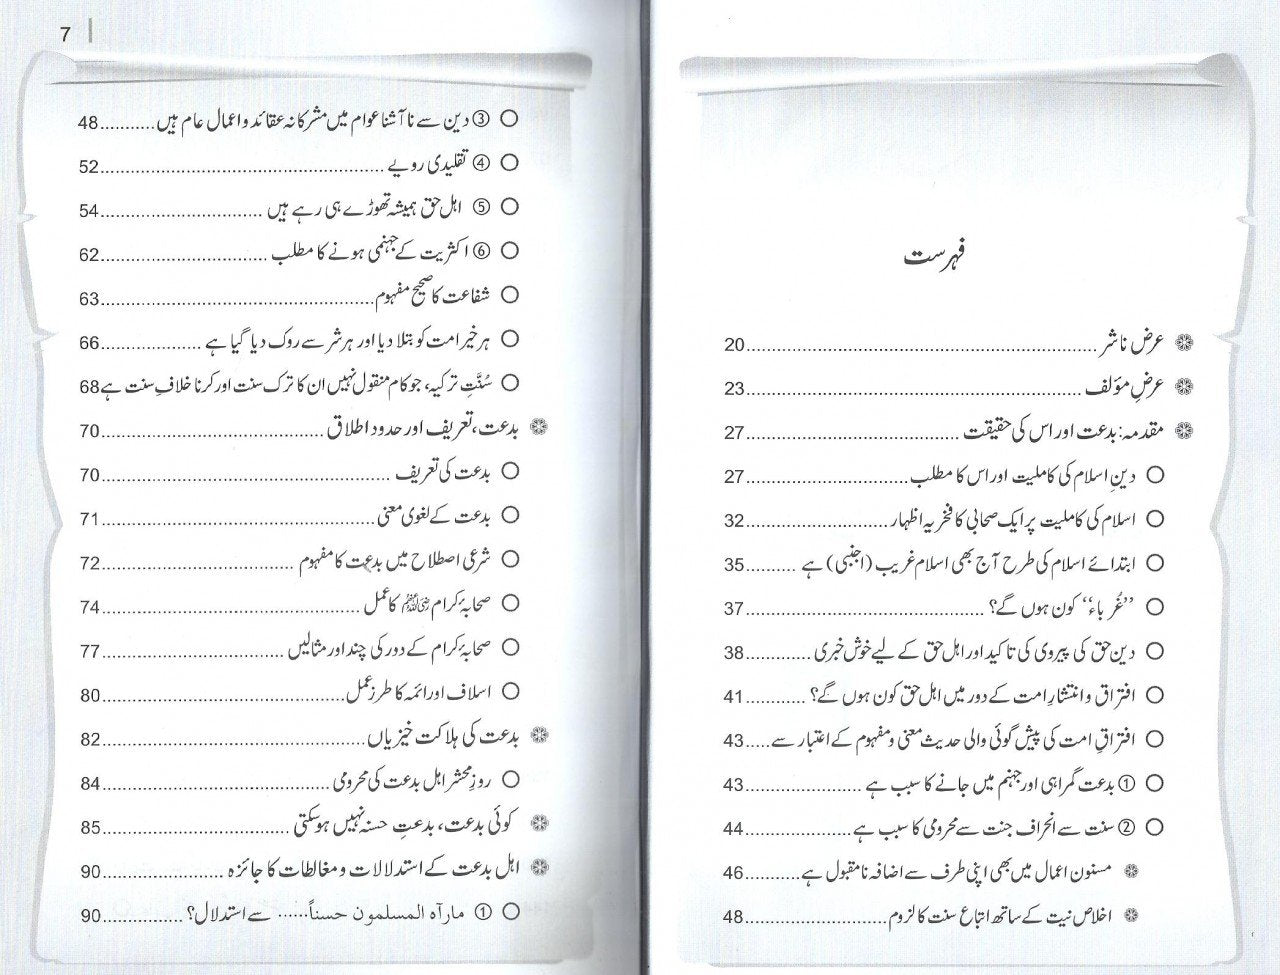 فہرست
❁ عرض ناشر ........ 20
❁ عرضِ مؤلف ........ 23
❁ مقدمہ: بدعت اور اس کی حقیقت ........ 27
○ دینِ اسلام کی کاملیت اور اس کا مطلب ........ 27
○ اسلام کی کاملیت پر ایک صحابی کا فخریہ اظہار ........ 32
○ ابتدائے اسلام کی طرح آج بھی اسلام غریب (اجنبی) ہے ........ 35
○ ’’غُرباء‘‘ کون ہوں گے؟ ........ 37
○ دین حق کی پیروی کی تاکید اور اہل حق کے لیے خوش خبری ........ 38
○ افتراق و انتشارِ امت کے دور میں اہل حق کون ہوں گے؟ ........ 41
○ افتراقِ امت کی پیش گوئی والی حدیث معنی و مفہوم کے اعتبار سے ..... 43
○ ① بدعت گمراہی اور جہنم میں جانے کا سبب ہے ........ 43
○ ② سنت سے انحراف جنت سے محرومی کا سبب ہے ........ 44
❁ مسنون اعمال میں بھی اپنی طرف سے اضافہ نامقبول ہے ........ 46
❁ اخلاص نیت کے ساتھ اتباع سنت کا لزوم ........ 48
7
○ ③ دین سے ناآشنا عوام میں مشرکانہ عقائد و اعمال عام ہیں ........ 48
○ ④ تقلیدی رویے ........ 52
○ ⑤ اہل حق ہمیشہ تھوڑے ہی رہے ہیں ........ 54
○ ⑥ اکثریت کے جہنمی ہونے کا مطلب ........ 62
○ شفاعت کا صحیح مفہوم ........ 63
○ ہر خیر امت کو بتلا دیا اور ہر شر سے روک دیا گیا ہے ........ 66
○ سُنَّتِ ترکیہ، جو کام منقول نہیں ان کا ترک سنت اور کرنا خلافِ سنت ہے 68
❁ بدعت، تعریف اور حدود اطلاق ........ 70
○ بدعت کی تعریف ........ 70
○ بدعت کے لغوی معنی ........ 71
○ شرعی اصطلاح میں بدعت کا مفہوم ........ 72
○ صحابۂ کرام رضی اللہ عنہم کا عمل ........ 74
○ صحابۂ کرام کے دور کی چند اور مثالیں ........ 77
○ اسلاف اور ائمہ کا طرز عمل ........ 80
❁ بدعت کی ہلاکت خیزیاں ........ 82
○ روزِ محشر اہل بدعت کی محرومی ........ 84
❁ کوئی بدعت، بدعتِ حسنہ نہیں ہوسکتی ........ 85
❁ اہل بدعت کے استدلالات و مغالطات کا جائزہ ........ 90
○ ① مارآہ المسلمون حسناً...... سے استدلال؟ ........ 90